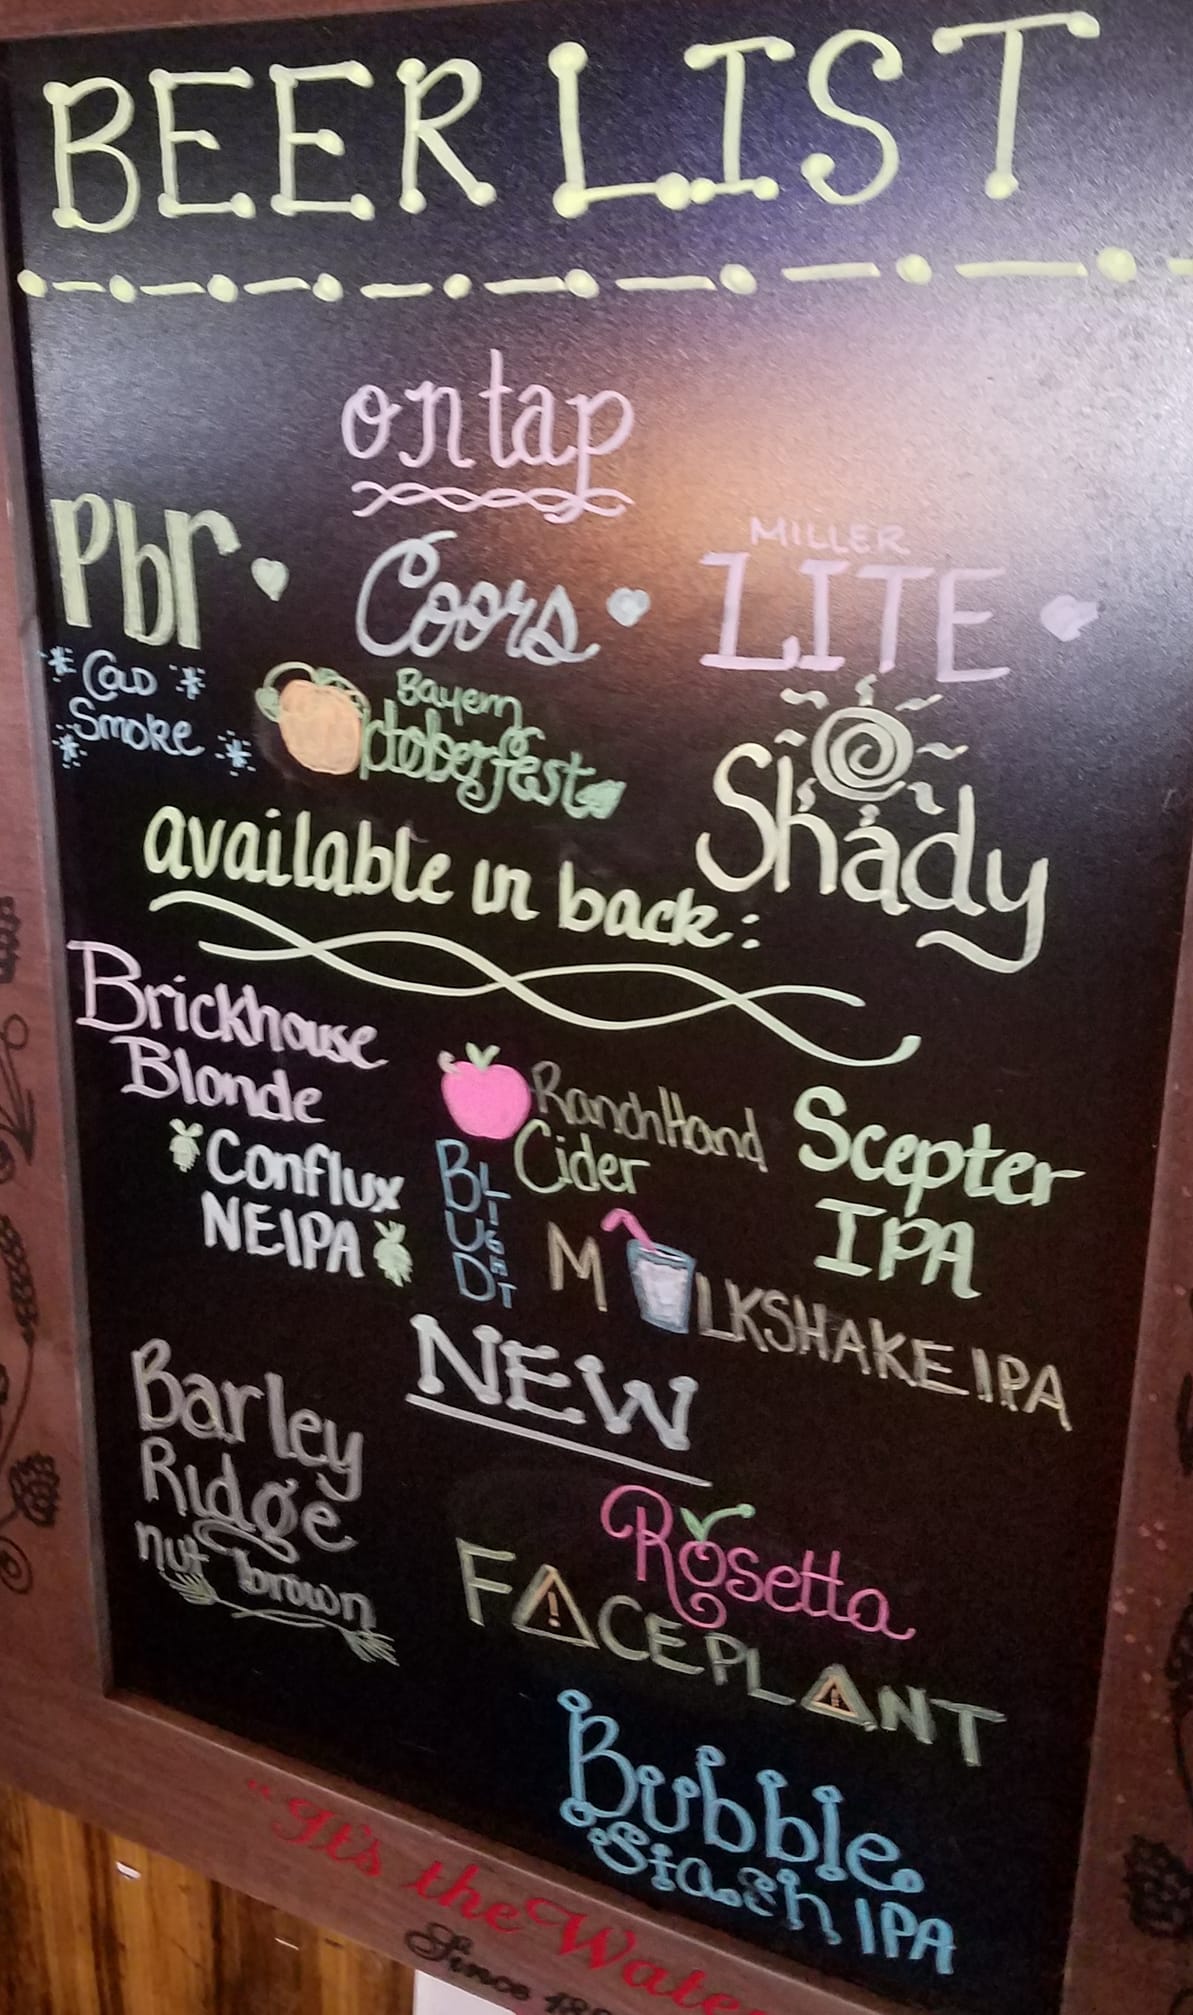 BEER LIST
on tap
Pbr Coors MILLER LITE
Cold Smoke
Bayern
Octoberfest
Shady
available in back:
Brickhouse
Blonde
RanchHand
Cider
Scepter
IPA
Conflux
NEIPA
BUD
LIGHT
MILKSHAKE IPA
NEW
Barley
Ridge
nut brown
Rosetta
FACEPLANT
Bubble
Stash IPA
"It's the Water
Since